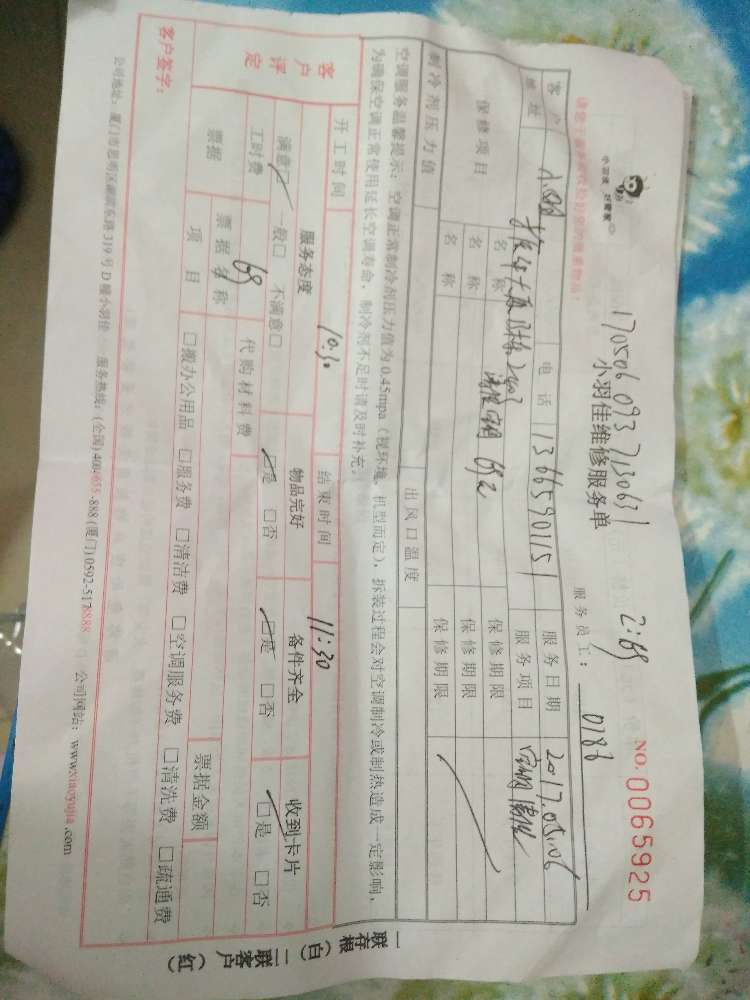 小羽佳 好管家
170506093713063
2:69
NO. 0065925
小羽佳维修服务单
服务员工: 0786
请您于服务前代您贵重物品!
客户
电话 13665901151
服务日期 2017.05.06
地址
服务项目 空调清洗
保修项目
名称 清洗空调 69元
保修期限
名称
保修期限
名称
保修期限
制冷剂压力值
出风口温度
空调服务温馨提示:空调正常制冷剂压力值为0.45mpa(视环境、机型而定),拆装过程会对空调制冷或制热造成一定影响,
为确保空调正常使用延长空调寿命,制冷剂不足时请及时补充。
开工时间 10:30 结束时间 11:30
客户评定
服务态度 物品完好 备件齐全 收到卡片
满意☑ 一般□ 不满意□ ☑是 □否 ☑是 □否 ☑是 □否
工时费 69 代购材料费
票据
票据名称 票据金额
项目 □搬办公用品 □服务费 □清洁费 □空调服务费 □清洗费 □疏通费
客户签字:
一联存根(白) 二联客户(红)
公司地址:厦门市思明区湖滨东路319号D幢小羽佳 服务热线:(全国)4001655-888(厦门)0592-5178888 公司网站:www.xiaoyujia.com